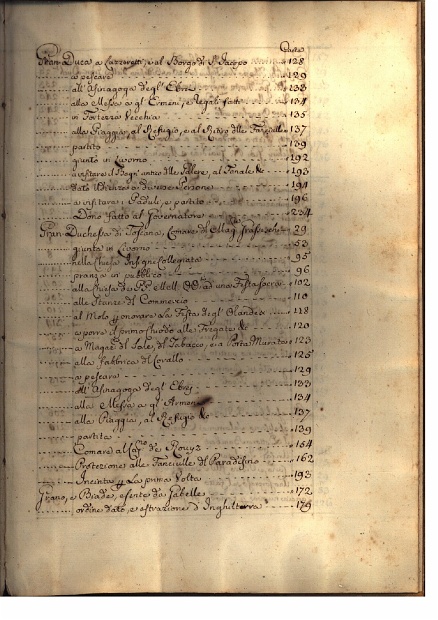 Carte
Gran Duca a Lazzeretti, e al Borgo di S. Jacopo 128
a pescare 129
all'Asinagoga degl'Ebrei 133
alla Messa a gl'Ermeni, e Regali fatti 134
in Fortezza Vecchia 135
alla Piaggia, al Refugio, e al Ritiro dlle Fanciulle 137
partito 139
giunto in Livorno 192
a visitare il Bagn'antico dlle Pallere, al Fanale &c 193
dati Uffizzi a diverse Persone 194
a visitare i Paduli, e partito 196
Dono fatto al Governatore 234
Gran Duchessa di Toscana, Comare dl Magg. 29
giunta in Livorno 53
nella Chiesa Insigne Collegiata 95
pranza in pubblico 96
alla Chiesa de PP. ad una Festa sacra 102
alle Stanze del Commercio 110
al Molo p onorare la Festa degl'Olandesi 118
a porre il primo chiodo alle Fregate &c 120
a Magaz. dl Sale, dl Tabacco, e a Porta Murata 123
alla Fabbrica dl Corallo 125
a pescare 129
all'Asinagoga degl'Ebrej 133
alla Messa a gl'Armeni 134
alla Piaggia, al Refugio &c 137
partita 139
Comare al de Roury 154
Protezioni alle Fanciulle dl Paradisino 162
Incinta p La prima Volta 193
Grano, e Biade, esente da Gabelle 172
ordine dato, e estrazione d'Inghilterra 179